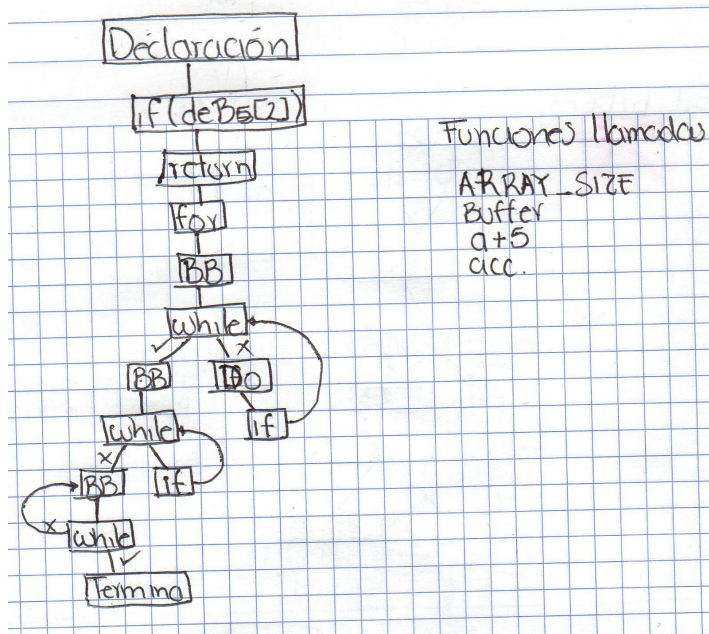 Declaración
if(deB5[2])
return
for
BB
while
✓
x
BB
DO
while
if
x
BB
if
x
while
✓
Termino
Funciones llamadas
ARRAY_SIZE
Buffer
a+5
acc.